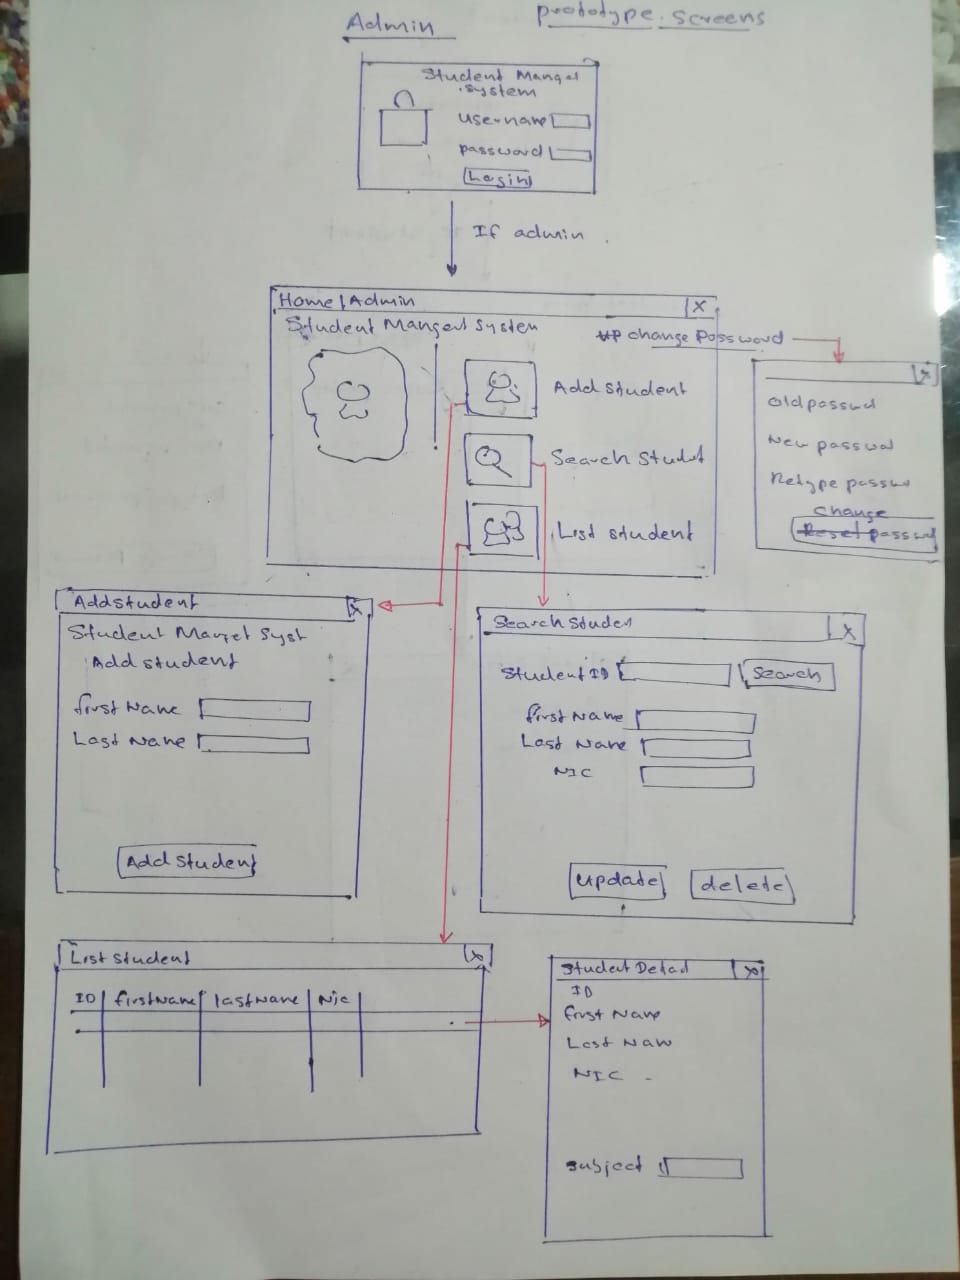 Admin
prototype screens
Student Manget
system
username
password
Login
If admin
Home/Admin
X
Student Manget System
change Password
Add student
Search Studet
List student
X
Old passwd
New passwod
Retype passwo
change
Reset passwd
Add student
X
Student Manget Syst
Add student
first Name
Last Name
Add Student
Search Studen
X
Student ID
Search
first Name
Last Name
NIC
update
delete
List student
X
ID
firstName
lastName
Nic
Student Detail
X
ID
first Name
Last Nam
NIC
subject